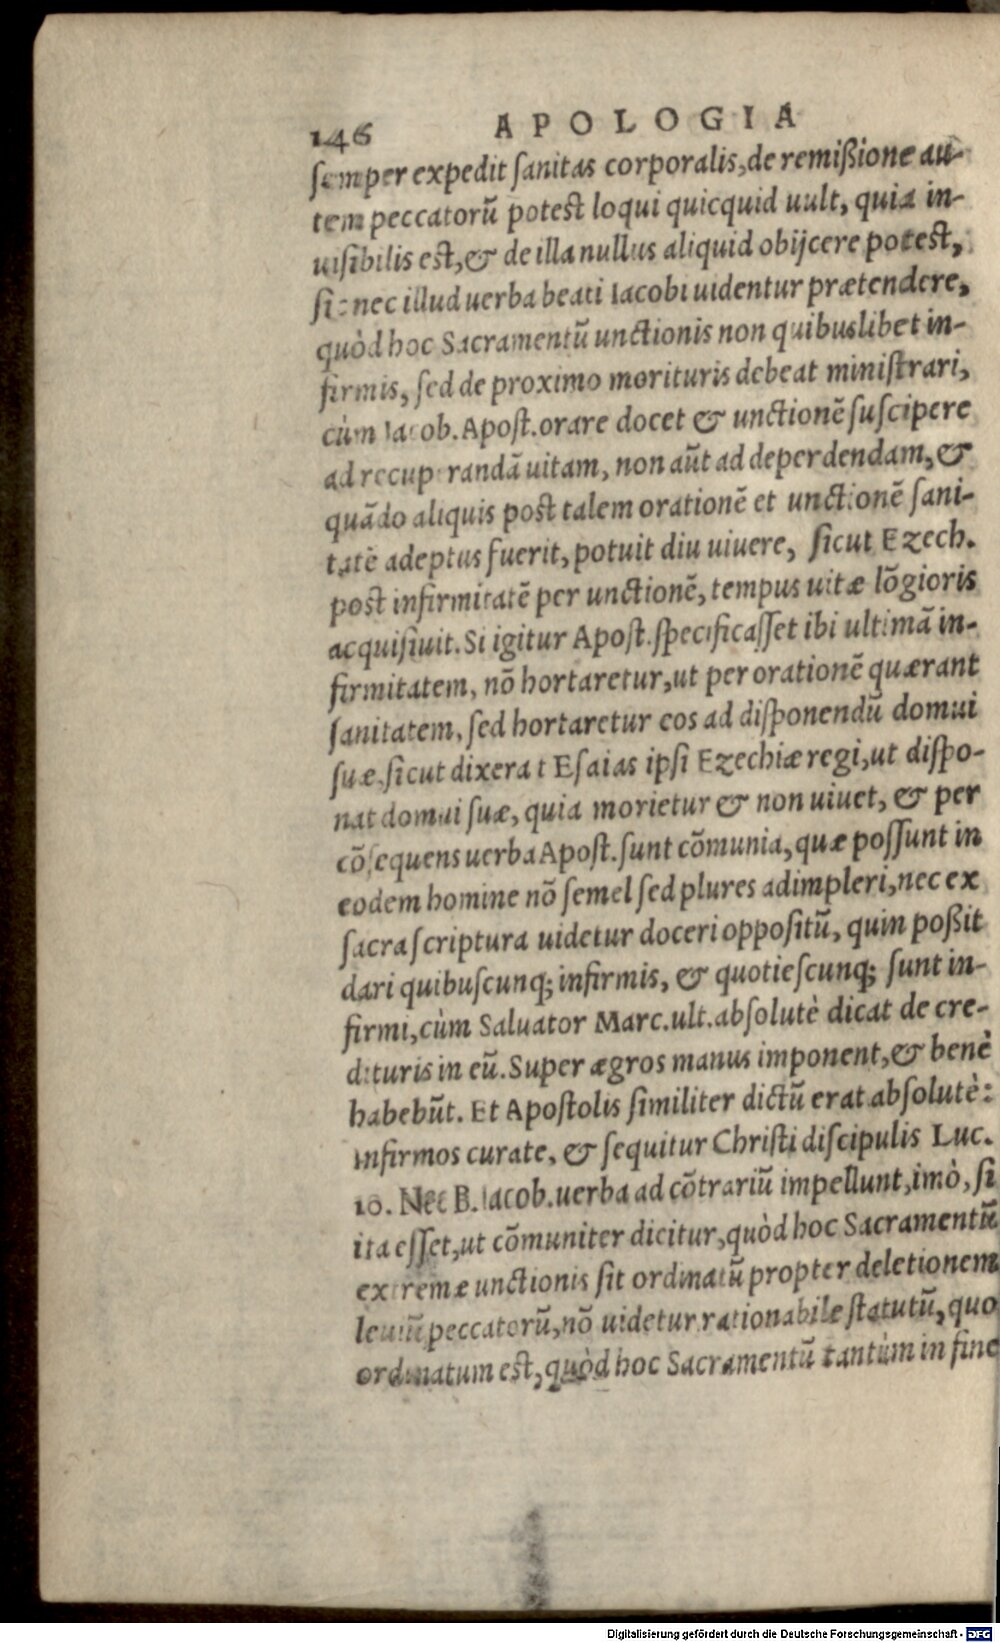 146 APOLOGIA
semper expedit sanitas corporalis, de remißione au-
tem peccatorũ potest loqui quicquid uult, quia in-
uisibilis est, & de illa nullus aliquid obijcere potest,
sic nec illud uerba beati Iacobi uidentur prætendere,
quòd hoc Sacramentũ unctionis non quibuslibet in-
firmis, sed de proximo morituris debeat ministrari,
cùm Iacob. Apost. orare docet & unctionẽ suscipere
ad recuperandã uitam, non aũt ad deperdendam, &
quãdo aliquis post talem orationẽ et unctionẽ sani-
tatẽ adeptus fuerit, potuit diu uiuere, sicut Ezech.
post infirmitatẽ per unctionẽ, tempus uitæ lõgioris
acquisiuit. Si igitur Apost. specificasset ibi ultimã in-
firmitatem, nõ hortaretur, ut per orationẽ quærant
sanitatem, sed hortaretur eos ad disponendũ domui
suæ, sicut dixerat Esaias ipsi Ezechiæ regi, ut dispo-
nat domui suæ, quia morietur & non uiuet, & per
cõsequens uerba Apost. sunt cõmunia, quæ possunt in
eodem homine nõ semel sed plures adimpleri, nec ex
sacra scriptura uidetur doceri oppositũ, quin poßit
dari quibuscunq; infirmis, & quotiescunq; sunt in-
firmi, cùm Saluator Marc. ult. absolutè dicat de cre-
dituris in eũ. Super ægros manus imponent, & benè
habebũt. Et Apostolis similiter dictũ erat absolutè:
infirmos curate, & sequitur Christi discipulis Luc.
10. Nec B. Iacob. uerba ad cõtrariũ impellunt, imò, si
ita esset, ut cõmuniter dicitur, quòd hoc Sacramentũ
extremæ unctionis sit ordinatũ propter deletionem
leuiũ peccatorũ, nõ uidetur rationabile statutũ, quo
ordinatum est, quòd hoc Sacramentũ tantùm in fine
Digitalisierung gefördert durch die Deutsche Forschungsgemeinschaft - DFG